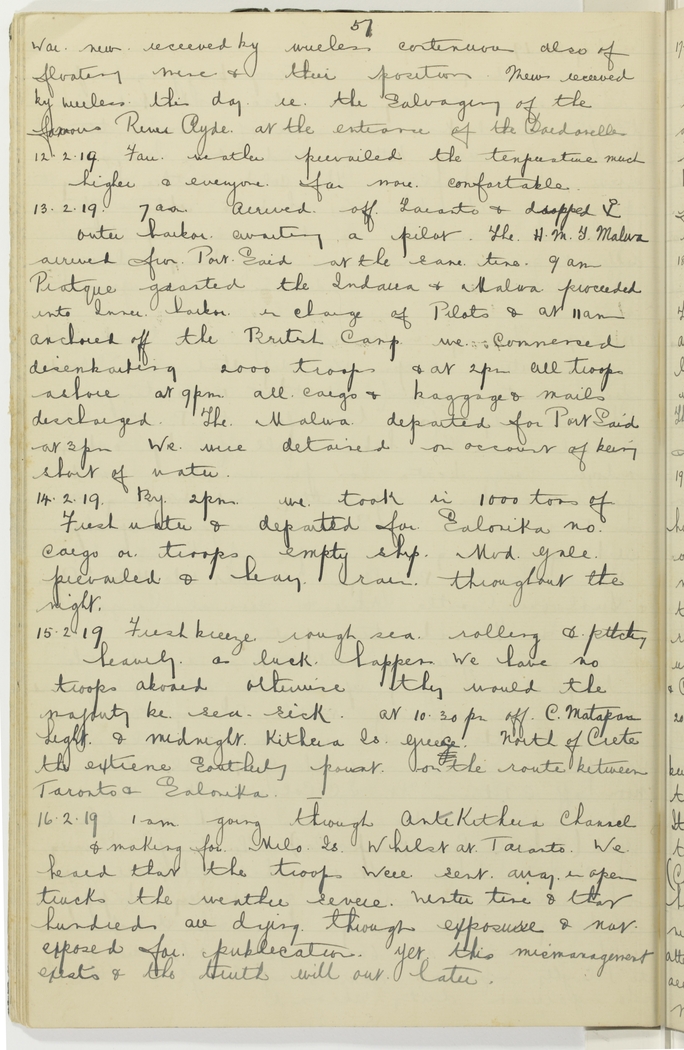 51
War news received by wireless continuous also of
floating mine & their position News received
by wireless this day re the Salvaging of the
famous River Clyde. at the entrance of the Dardanelles
12.2.19 Fair weather prevailed the temperature much
higher & everyone far more comfortable.
13.2.19. 7am Arrived off Taranto & dropped
outer harbor awaiting a pilot. The H.M.T. Malwa
arrived from Port Said at the same time. 9 am
Pratique granted the Indarra & Malwa proceeded
into Inner harbor in charge of Pilots & at 11am
anchored off the British Camp we commenced
disembarking 2000 troops & at 2pm all troops
ashore at 9pm all cargo & baggage & mails
discharged. The Malwa departed for Port Said
at 3pm We were detained on account of being
short of water.
14.2.19. By 2pm we took in 1000 tons of
Fresh water & departed for Salonika no
cargo or troops empty ship. Mod gale
prevailed & heavy rain throughout the
night.
15.2.19 Fresh breeze rough sea rolling & pitching
heavily as luck happen We have no
troops aboard otherwise they would the
majority be sea-sick. at 10.30 pm off C. Matapan
Light & midnight. Kithera Is. Greece. North of Crete
the extreme Southerly point on the route between
Taranto & Salonika.
16.2.19 1am going through AntiKithera Channel
& making for Milo Is. Whilst at Taranto We
heard that the troops were sent away in open
trucks the weather severe Winter time & that
hundreds are dying through exposure & not
exposed for publication yet this mismanagement
exists & the truth will out later.